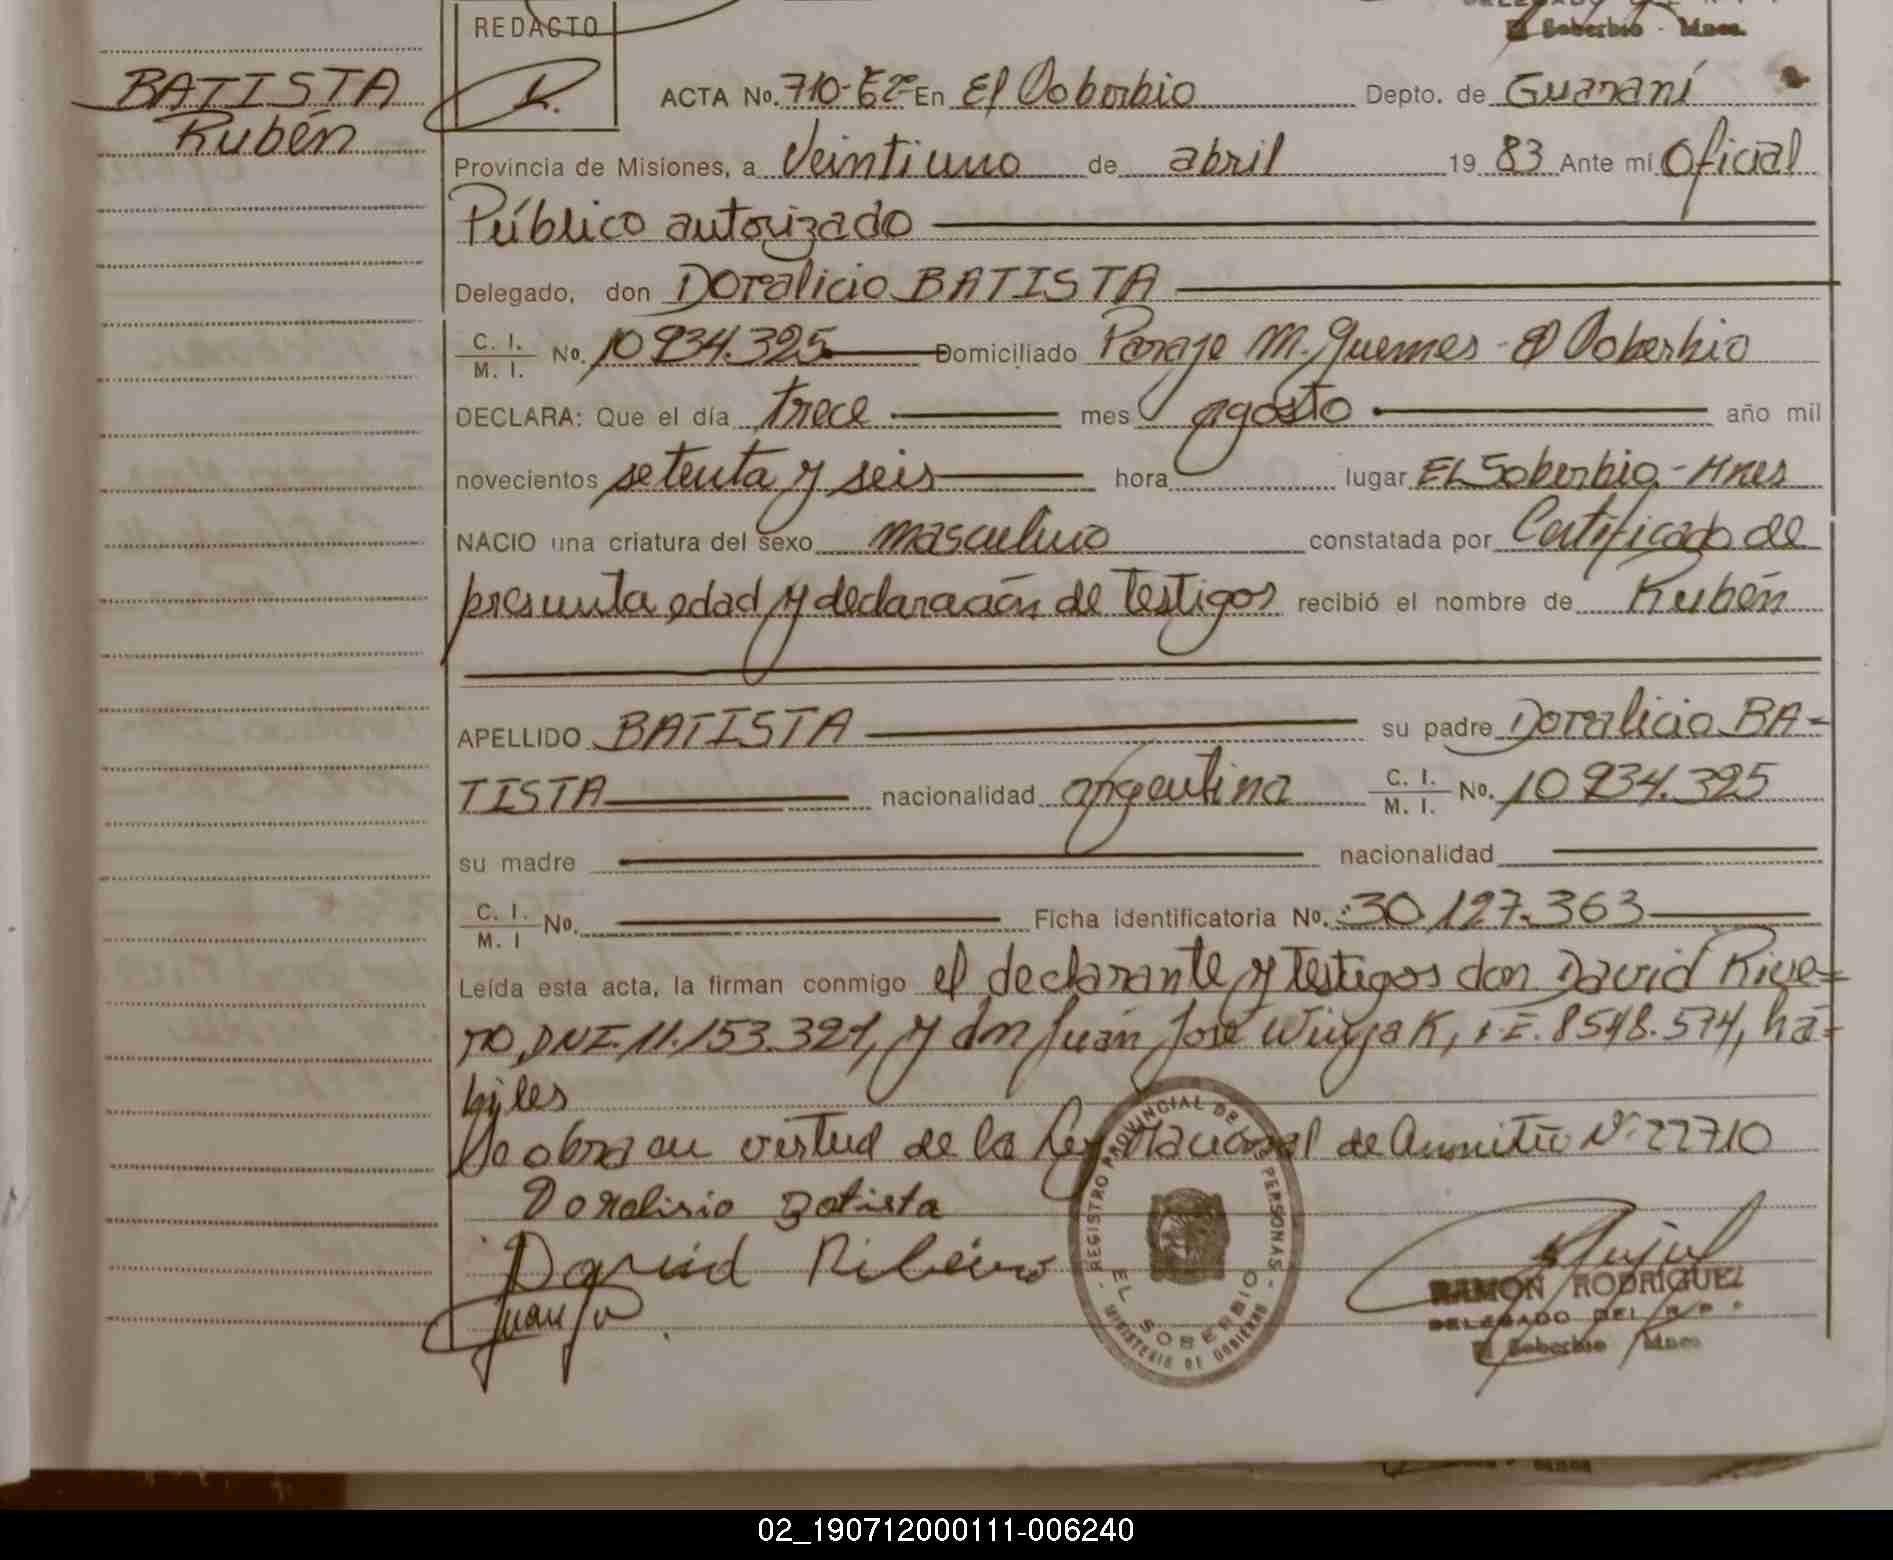 REDACTO
El Soberbio - Mnes.
BATISTA
Rubén
ACTA No. 710-Eº En El Soberbio Depto. de Guaraní
Provincia de Misiones, a Veintiuno de abril 19 83 Ante mí Oficial
Público autorizado
Delegado, don Doralicio BATISTA
C. I. / M. I. No. 10.934.325 Domiciliado Paraje M. Guemes - El Soberbio
DECLARA: Que el día trece mes agosto año mil
novecientos setenta y seis hora lugar EL Soberbio - Mnes
NACIO una criatura del sexo masculino constatada por Certificado de
presunta edad y declaración de testigos recibió el nombre de Rubén
APELLIDO BATISTA su padre Doralicio BA-
TISTA nacionalidad argentina C. I. / M. I. No. 10.934.325
su madre nacionalidad
C. I. / M. I No. Ficha identificatoria No. 30.127.363
Leída esta acta, la firman conmigo el declarante y testigos don David Rive=
ro, DNI. 11.153.321, y don Juán José L.E. 8548.574, há=
biles
Se obra en virtud de la Ley Nacional de Amnitío Nº 22710
Doralisio Batista
David Ribeiro
Juan
REGISTRO PROVINCIAL DE LAS PERSONAS - MINISTERIO DE GOBIERNO -
EL SOBERBIO
RAMON RODRIGUEZ
DELEGADO DEL R. P. P.
El Soberbio Mnes.
02_190712000111-006240